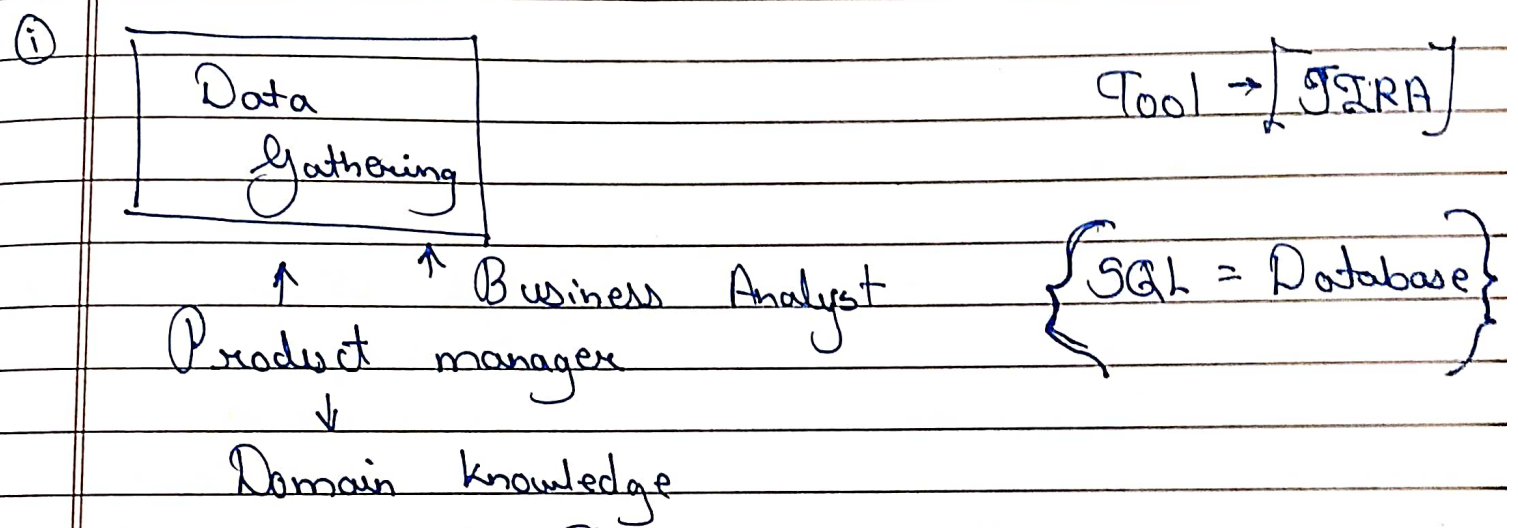 i
Data
Gathering
Tool → [JIRA]
↑ ↑ Business Analyst
{SQL = Database}
Product manager
↓
Domain knowledge